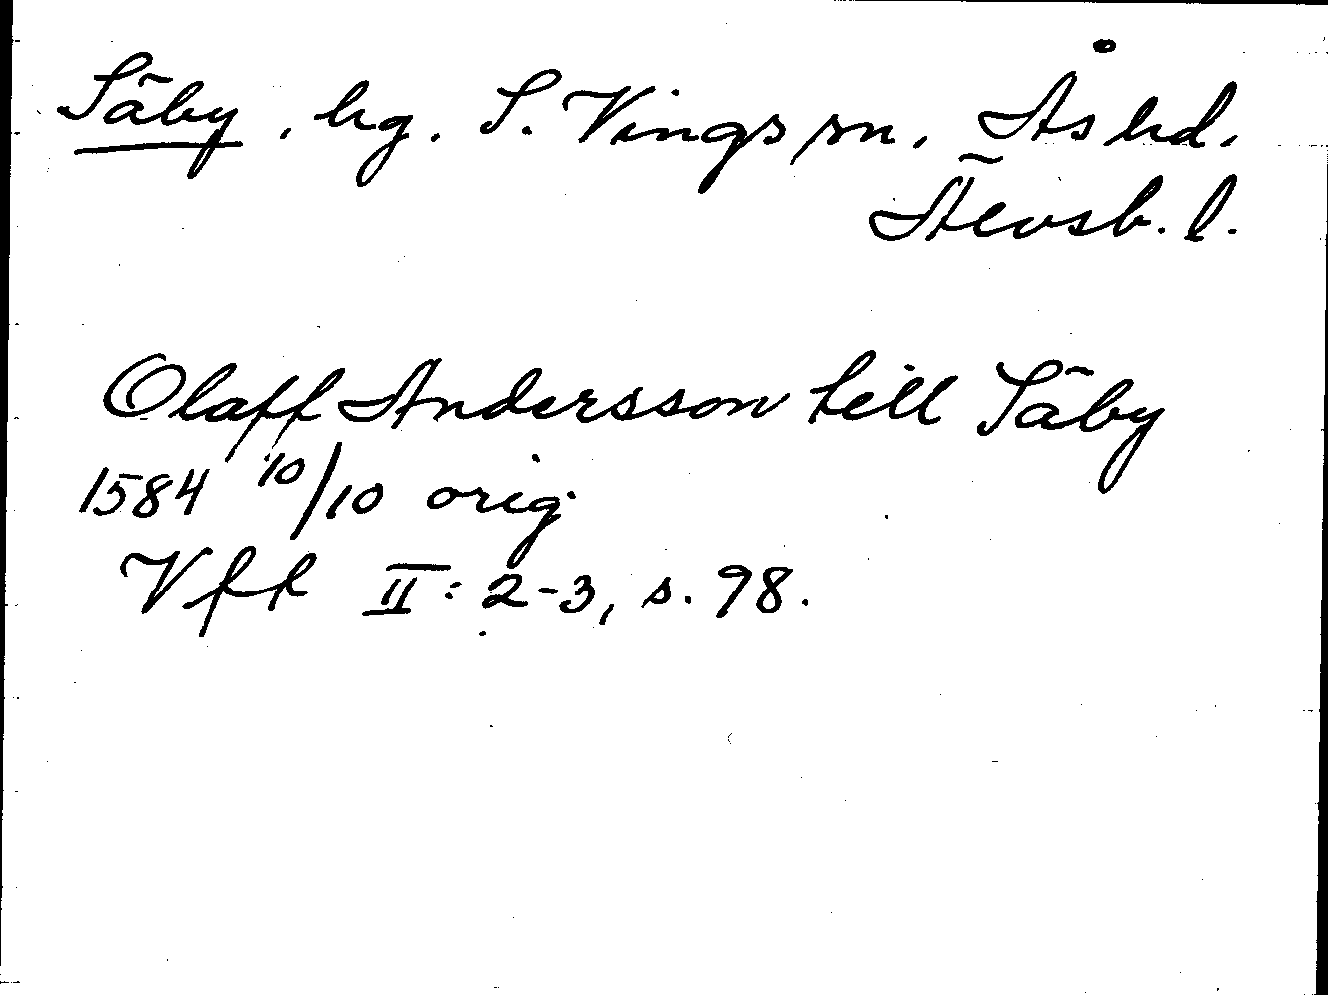 Säby, hg. S. Vings sn. Ås hd.
Älvsb. l.
Olaff Andersson till Säby
1584 10/10 orig.
Vff II: 2-3, s. 98.